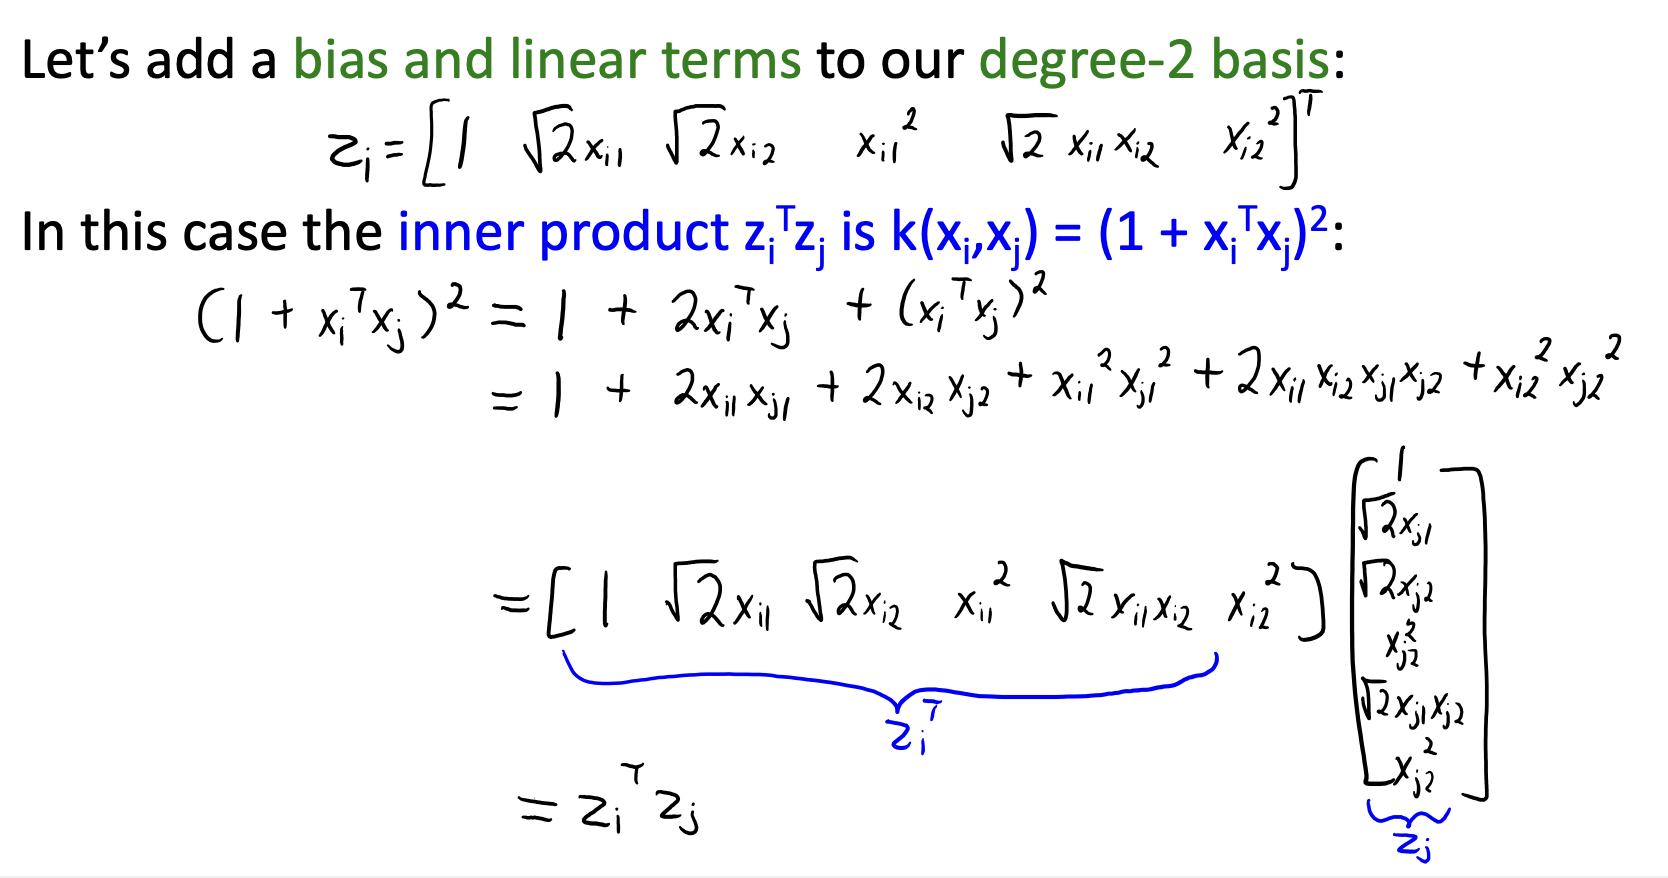 Let's add a bias and linear terms to our degree-2 basis:
zᵢ = [1 √2xᵢ₁ √2xᵢ₂ xᵢ₁² √2 xᵢ₁xᵢ₂ xᵢ₂²]ᵀ
In this case the inner product zᵢᵀzⱼ is k(xᵢ,xⱼ) = (1 + xᵢᵀxⱼ)²:
(1 + xᵢᵀxⱼ)² = 1 + 2xᵢᵀxⱼ + (xᵢᵀxⱼ)²
= 1 + 2xᵢ₁xⱼ₁ + 2xᵢ₂xⱼ₂ + xᵢ₁²xⱼ₁² + 2xᵢ₁xᵢ₂xⱼ₁xⱼ₂ + xᵢ₂²xⱼ₂²
= [1 √2xᵢ₁ √2xᵢ₂ xᵢ₁² √2 xᵢ₁xᵢ₂ xᵢ₂²]
[1
√2xⱼ₁
√2xⱼ₂
xⱼ₂²
√2xⱼ₁xⱼ₂
xⱼ₂²]
zᵢᵀ
zⱼ
= zᵢᵀzⱼ